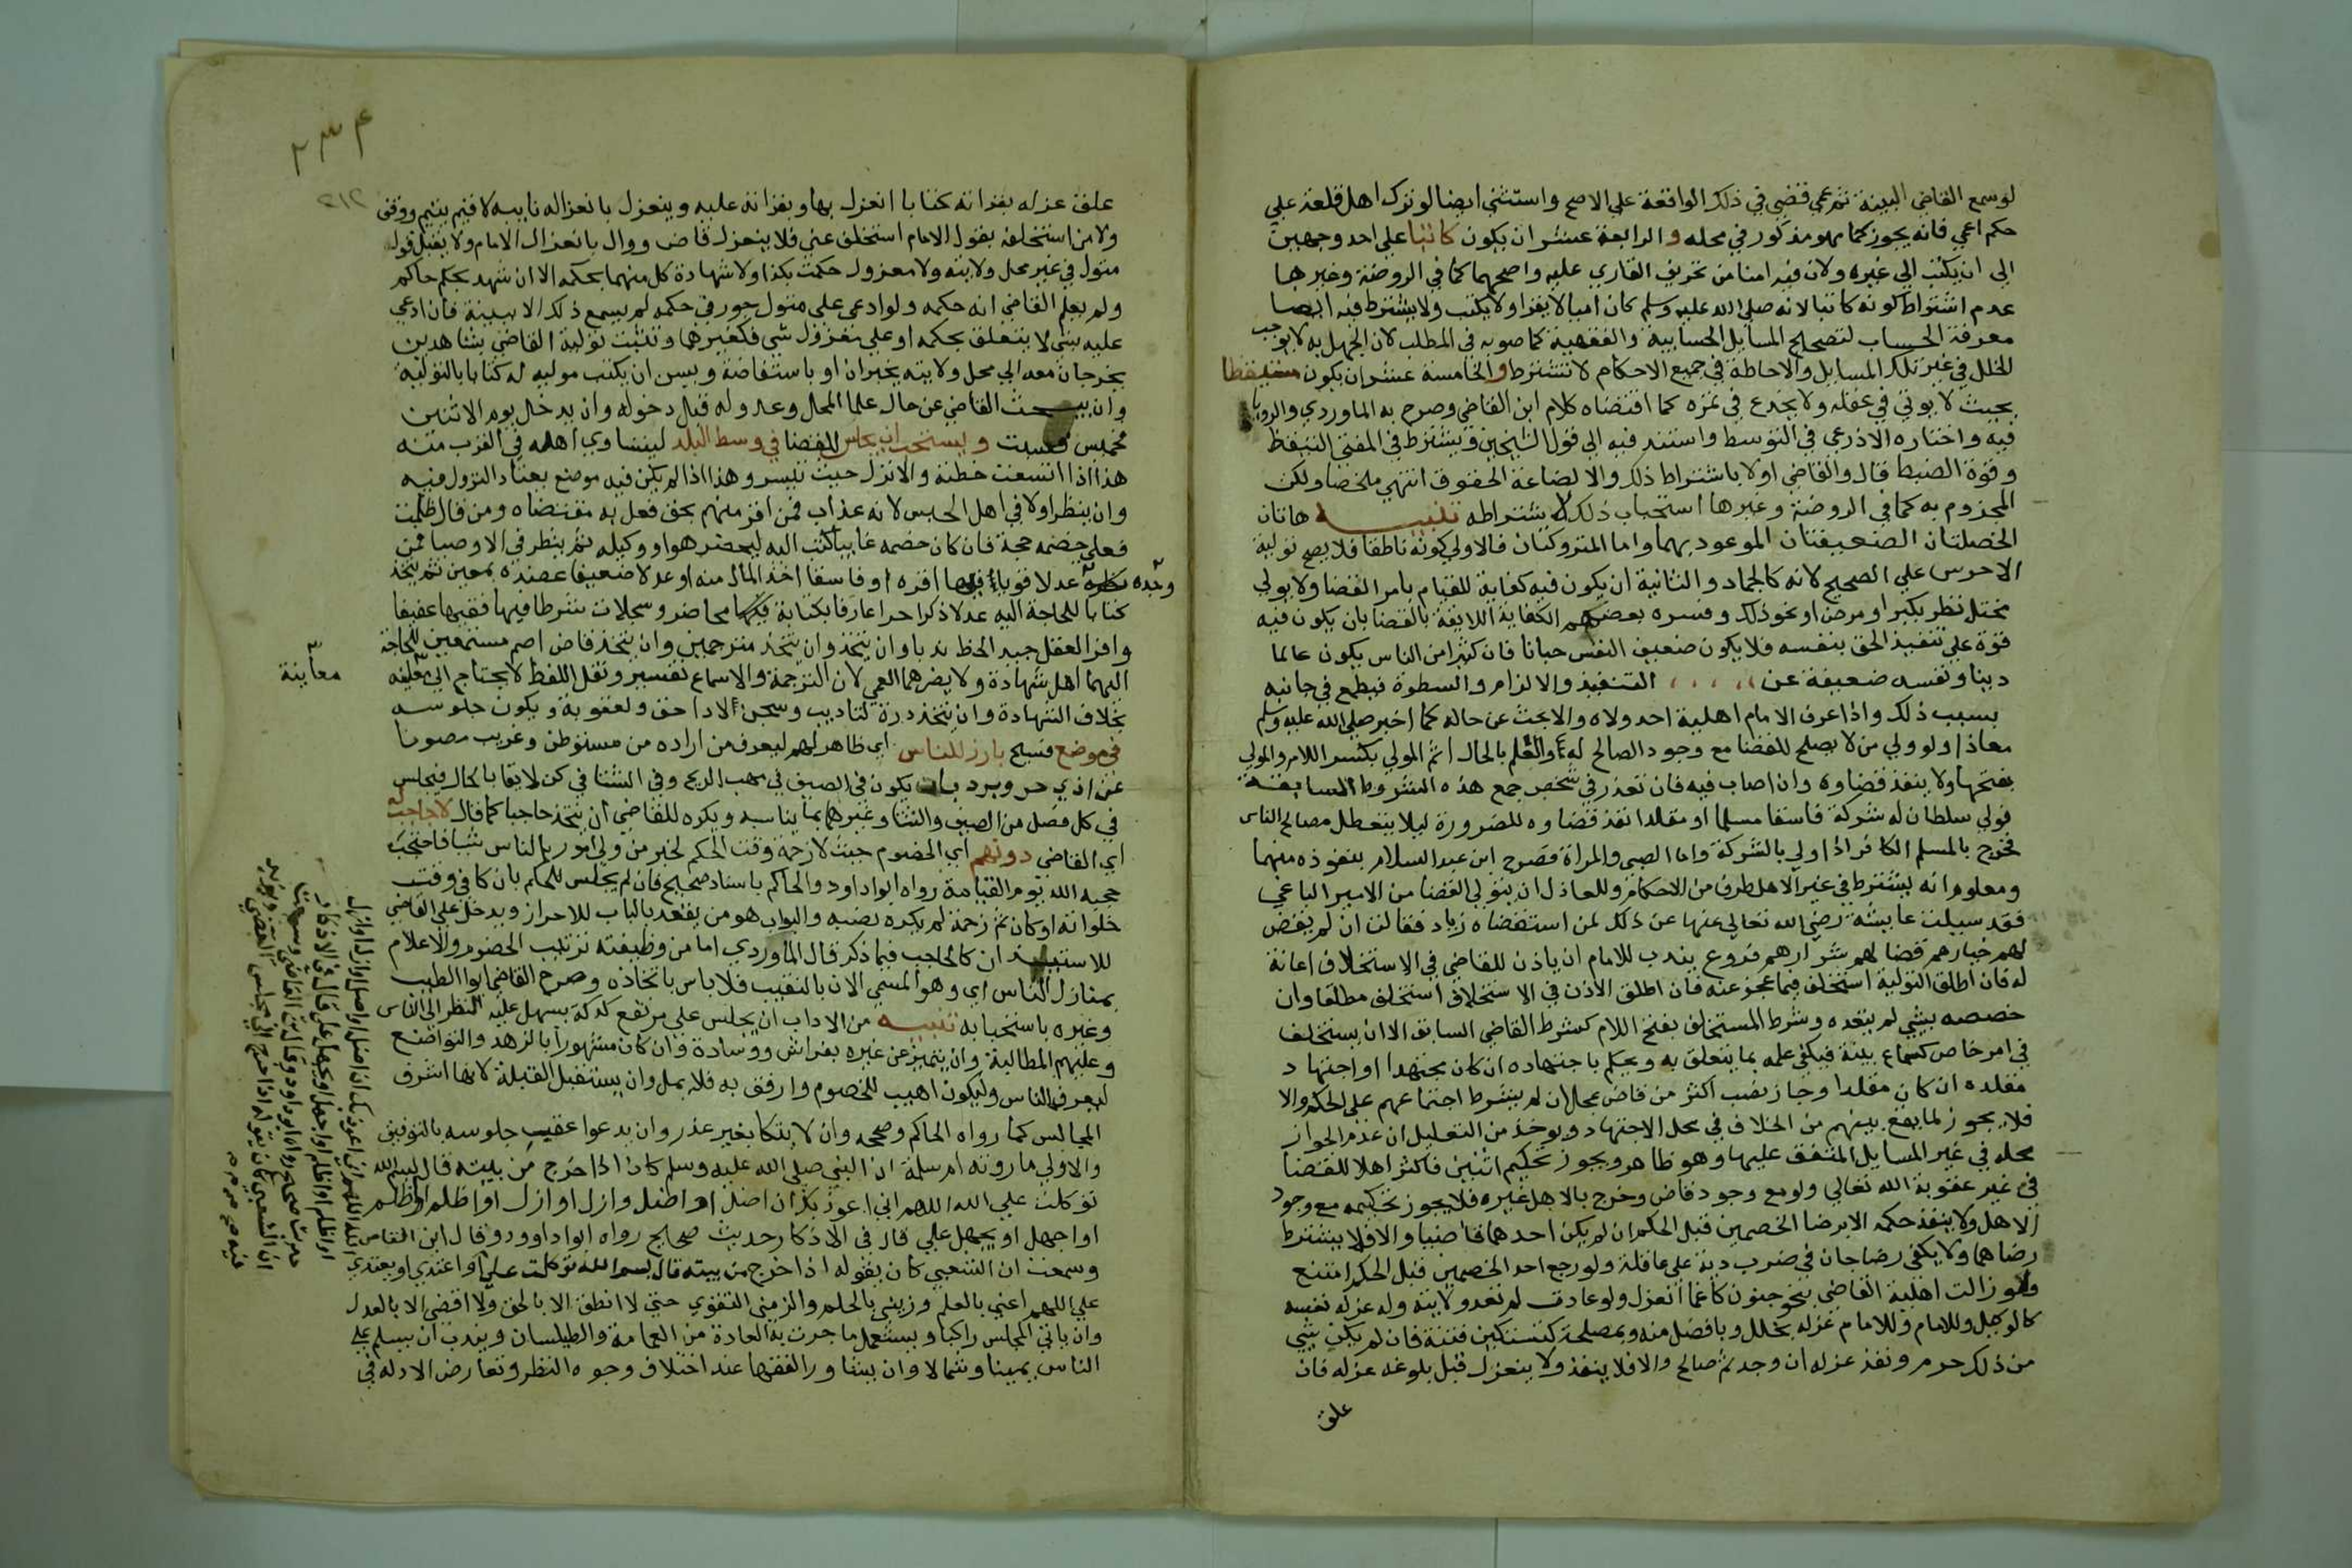 لوسمع القاضي البينة ثم عمي قضي في ذلك الواقعة علي الاصح واستثني ايضا لو نزل اهل قلعة علي
حكم اعمي فانه يجوز كما هو مذكور في محله والرابعة عشر ان يكون كاتبا علي احد وجهين
الي ان يكتب الي غيره ولان فيه امنا من تحريف القاري عليه واصحهما كما في الروضة وغيرها
عدم اشتراط كونه كاتبا لانه صلي الله عليه وسلم كان اميا لا يقرا ولا يكتب ولا يشترط فيه ايضا
معرفة الحساب لتصحيح المسايل الحسابية والفقهية كما صوبه في المطلب لان الجهل به لا يوجب
الخلل في غير تلك المسايل والاحاطة في جميع الاحكام لا تشترط والخامسة عشر ان يكون متيقظا
بحيث لا يوتي في غفلة ولا يخدع في غرة كما اقتضاه كلام ابن القاضي وصرح به الماوردي والروياني
فيه واختاره الاذرعي في التوسط واستند فيه الي قول الشيخين ويشترط في المفتي التيقظ
وقوة الضبط قال والقاضي اولا باشتراط ذلك والا لضاعة الحقوق انتهي ملخصا ولكن
المجزوم به كما في الروضة وغيرها استحباب ذلك لا اشتراطه تنبيه هاتان
الخصلتان الضعيفتان الموعود بهما واما المتروكتان فالاولي كونه ناطقا فلا يصح تولية
الاخرس علي الصحيح لانه كالجماد والثانية ان يكون فيه كفاية للقيام بامر القضا ولا يولي
مختل نظر بكبر او مرض او نحو ذلك وفسره بعضهم الكفاية اللايقة بالقضا بان يكون فيه
قوة علي تنفيذ الحق بنفسه فلا يكون ضعيف النفس جبانا فان كثيرا من الناس يكون عالما
دينا ونفسه ضعيفة عن التنفيذ والالزام والسطوة فيطمع في جانبه
بسبب ذلك واذا عرف الامام اهلية احد ولاه والا بحث عن حاله كما اختبر صلي الله عليه وسلم
معاذا ولو ولي من لا يصلح للقضا مع وجود الصالح له والعلم بالحال اثم المولي بكسر اللام والمولي
بفتحها ولا ينفذ قضاوه وان اصاب فيه فان تعذر في شخص جمع هذه الشروط السابقة
فولي سلطان له شوكة فاسقا مسلما او مقلدا نفذ قضاوه للضرورة ليلا يتعطل مصالح الناس
فخرج بالمسلم الكافر اذا ولي بالشوكة واما الصبي والمراة فصرح ابن عبد السلام بنفوذه منهما
ومعلوم انه يشترط في غير الاهل طرف من الاحكام وللعادل ان يتولي القضا من الامير الباغي
فقد سيلت عايشة رضي الله تعالي عنها عن ذلك لمن استقضاه زياد فقالت ان لم يقض
لهم خيارهم قضا لهم شرارهم فروع يندب للامام ان ياذن للقاضي في الاستخلاف اعانة
له فان اطلق التولية استخلف فيما عجز عنه فان اطلق الاذن في الاستخلاف استخلف مطلقا وان
خصصه بشي لم يتعده وشرط المستخلف بفتح اللام كشرط القاضي السابق الا ان يستخلف
في امر خاص كسماع بينة فيكفي علمه بما يتعلق به ويحكم باجتهاده ان كان مجتهدا او اجتهاد
مقلده ان كان مقلدا وجاز نصب اكثر من قاض بمحل ان لم يشترط اجتماعهم علي الحكم والا
فلا يجوز لما يقع بينهم من الخلاف في محل الاجتهاد ويوخذ من التعليل ان عدم الجواز
محله في غير المسايل المتفق عليها وهو ظاهر ويجوز تحكيم اثنين فاكثر اهلا للقضا
في غير عقوبة الله تعالي ولو مع وجود قاض وخرج بالاهل غيره فلا يجوز تحكيمه مع وجود
الاهل ولا ينفذ حكمه الا برضا الخصمين قبل الحكم ان لم يكن احدهما قاضيا والا فلا يشترط
رضاهما ولا يكفي رضا جان في ضرب دية علي عاقلة ولو رجع احد الخصمين قبل الحكم امتنع
ولو زالت اهلية القاضي بنحو جنون كاغما انعزل ولو عادت لم تعد ولايته وله عزل نفسه
كالوكيل وللامام عزله بخلل وبافضل منه وبمصلحة كتسكين فتنة فان لم يكن شي
من ذلك حرم ونفذ عزله ان وجد ثم صالح والا فلا ينفذ ولا ينعزل قبل بلوغه عزله فان
علق
٢٣٤
٢١٢
علق عزله بقراته كتابا انعزل بها وبقراته عليه وينعزل بانعزاله نايبه لا قيم يتيم ووقف
ولا من استخلفه بقول الامام استخلف عني فلا ينعزل قاض ووال بانعزال الامام ولا يقبل قول
متول في غير محل ولايته ولا معزول حكمت بكذا ولا شهادة كل منهما بحكمه الا ان شهد بحكم حاكم
ولم يعلم القاضي انه حكمه ولو ادعي علي متول جور في حكمه لم يسمع ذلك الا ببينة فان ادعي
عليه بشي لا يتعلق بحكمه او علي معزول شي فكغيرهما وتثبت تولية القاضي بشاهدين
يخرجان معه الي محل ولايته يخبران او باستفاضة ويسن ان يكتب موليه له كتابا بالتولية
وان يبحث القاضي عن حال علما المحل وعدوله قبل دخوله وان يدخل يوم الاثنين
فخميس فسبت ويستحب ان يجلس للقضا في وسط البلد ليتساوي اهله في القرب منه
هذا اذا اتسعت خطته والا نزل حيث تيسر وهذا اذا لم يكن فيه موضع يعتاد النزول فيه
وان ينظر اولا في اهل الحبس لانه عذاب فمن اقر منهم بحق فعل به مقتضاه ومن قال ظلمت
فعلي خصمه حجة فان كان خصمه غايبا كتب اليه ليحضر هو او وكيله ثم ينظر في الاوصيا فمن
وجده عدلا قويا فيها اقره او فاسقا اخذ المال منه او عدلا ضعيفا عضده بمعين ثم يتخذ
كتابا للحاجة اليه عدلا ذكرا حرا عارفا بكتابة محاضر وسجلات شرطا فيها فقيها عفيفا
وافر العقل جيد الخط ندبا وان يتخذ وان يتخذ مترجمين وان يتخذ قاض اصم مسمعين للحاجة
اليهما اهل شهادة ولا يضرهما العمي لان الترجمة والاسماع تفسير ونقل اللفظ لا يحتاج الي
معاينة
بخلاف الشهادة وان يتخذ درة لتاديب وسجن لاداحق ولعقوبة ويكون جلوسه
في موضع فسيح بارز للناس اي ظاهر لهم ليعرف من اراده من مستوطن وغريب مصونا
عن اذي حر وبرد بان يكون في الصيف في مهب الريح وفي الشتا في كن لايقا بالحال فيجلس
في كل فصل من الصيف والشتا وغيرهما بما يناسبه ويكره للقاضي ان يتخذ حاجبا كما قال لا حاجب له
اي القاضي دونهم اي الخصوم حيث لا زحمة وقت الحكم لخبر من ولي امور الناس شيا فاحتجب
حجبه الله يوم القيامة رواه ابو داود والحاكم باسناد صحيح فان لم يجلس للحكم بان كان في وقت
خلواته او كان ثم زحمة لم يكره نصبه والبواب هو من يقعد بالباب للاحراز ويدخل علي القاضي
للاستيذان كالحاجب فيما ذكر قال الماوردي اما من وظيفته ترتيب الخصوم والاعلام
بمنازل الناس اي وهو المسمي الان بالنقيب فلا باس باتخاذه وصرح القاضي ابو الطيب
وغيره باستحبابه تنبيه من الاداب ان يجلس علي مرتفع كدكة يسهل عليه النظر الي الناس
وعليهم المطالبة وان يتميز عن غيره بفراش ووسادة وان كان مشهورا بالزهد والتواضع
ليعرف الناس وليكون اهيب للخصوم وارفق به فلا يمل وان يستقبل القبلة لانها اشرف
المجالس كما رواه الحاكم وصححه وان لا يتكا بغير عذر وان يدعوا عقيب جلوسه بالتوفيق
والاولي ما روته ام سلمة ان النبي صلي الله عليه وسلم كان اذا خرج من بيته قال بسم الله
توكلت علي الله اللهم اني اعوذ بك ان اضل او اضل وازل او ازل او اظلم او اظلم
او اجهل او يجهل علي قال في الاذكار حديث صحيح رواه ابو داوود وقال ابن القاص
وسمعت ان الشعبي كان يقوله اذا خرج من بيته قال بسم الله توكلت علي او اعتدي او يعتدي
علي اللهم اعني بالعلم وزيني بالحلم والزمني التقوي حتي لا انطق الا بالحق ولا اقضي الا بالعدل
وان ياتي المجلس راكبا ويستعمل ما جرت به العادة من العمامة والطيلسان ويندب ان يسلم علي
الناس يمينا وشمالا وان يشاور الفقها عند اختلاف وجوه النظر وتعارض الادلة في
الله اللهم اني اعوذ بك ان اضل او اضل او ازل او ازل
او اظلم او اظلم او اجهل او يجهل علي قال في الاذكار
حديث صحيح رواه ابو داود وقال ابن القاص وسمعت
ان الشعبي كان يقوله اذا خرج الي مجلس القضي ويزيد
فيه